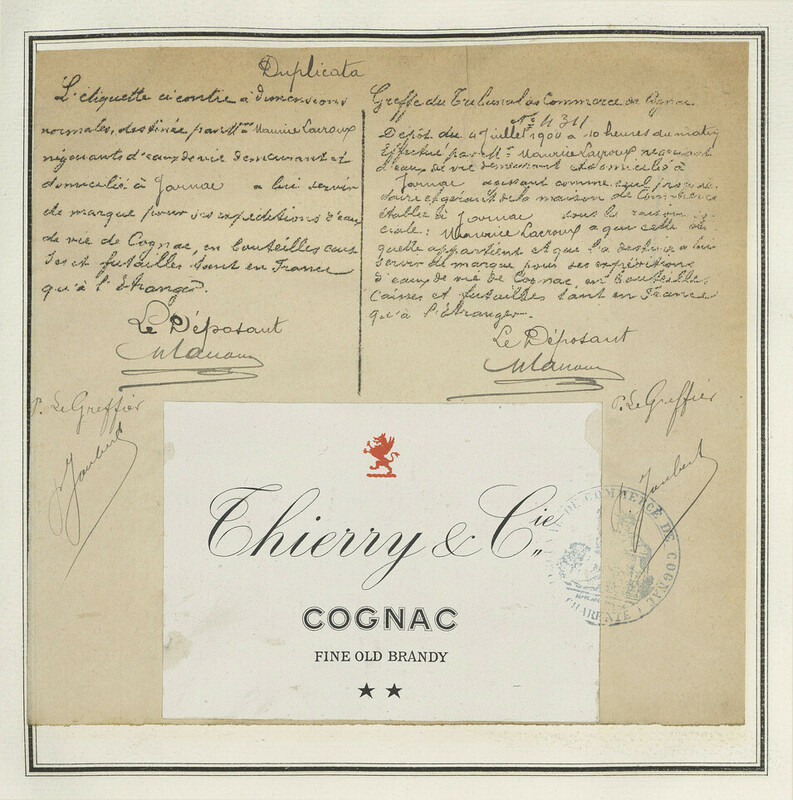 Duplicata
L'etiquette ci contre à dimensions
normales, destinée par Mr Maurice Lacroux
négociants d'eaux de vie demeurant et
domicilié à Jarnac a lui servir
de marque pour ses expeditions d'eaux
de vie de Cognac, en bouteilles cais
ses et futailles tant en France
qu'à l'étranger.
Le Déposant
P. Le Greffier
Jaubert
Greffe du Tribunal de Commerce de Cognac
No 4311
Dépôt du 4 Juillet 1900 à 10 heures du matin
Effectué par Mr Maurice Lacroux négociant
d'eaux de vie demeurant et domicilié à
Jarnac agissant comme seul proprié
taire et gérant de la maison de Commerce
établie à Jarnac sous la raison so
ciale: Maurice Lacroux a qui cette éti
quette appartient et que l'a destine a lui
servir de marque pour ses expéditions
d'eaux de vie de Cognac, en bouteilles
caisses et futailles tant en France
qu'à l'étranger.
Le Déposant
P. Le Greffier
Jaubert
Thierry & Cie
COGNAC
FINE OLD BRANDY
DE COMMERCE DE COGNAC
CHARENTE